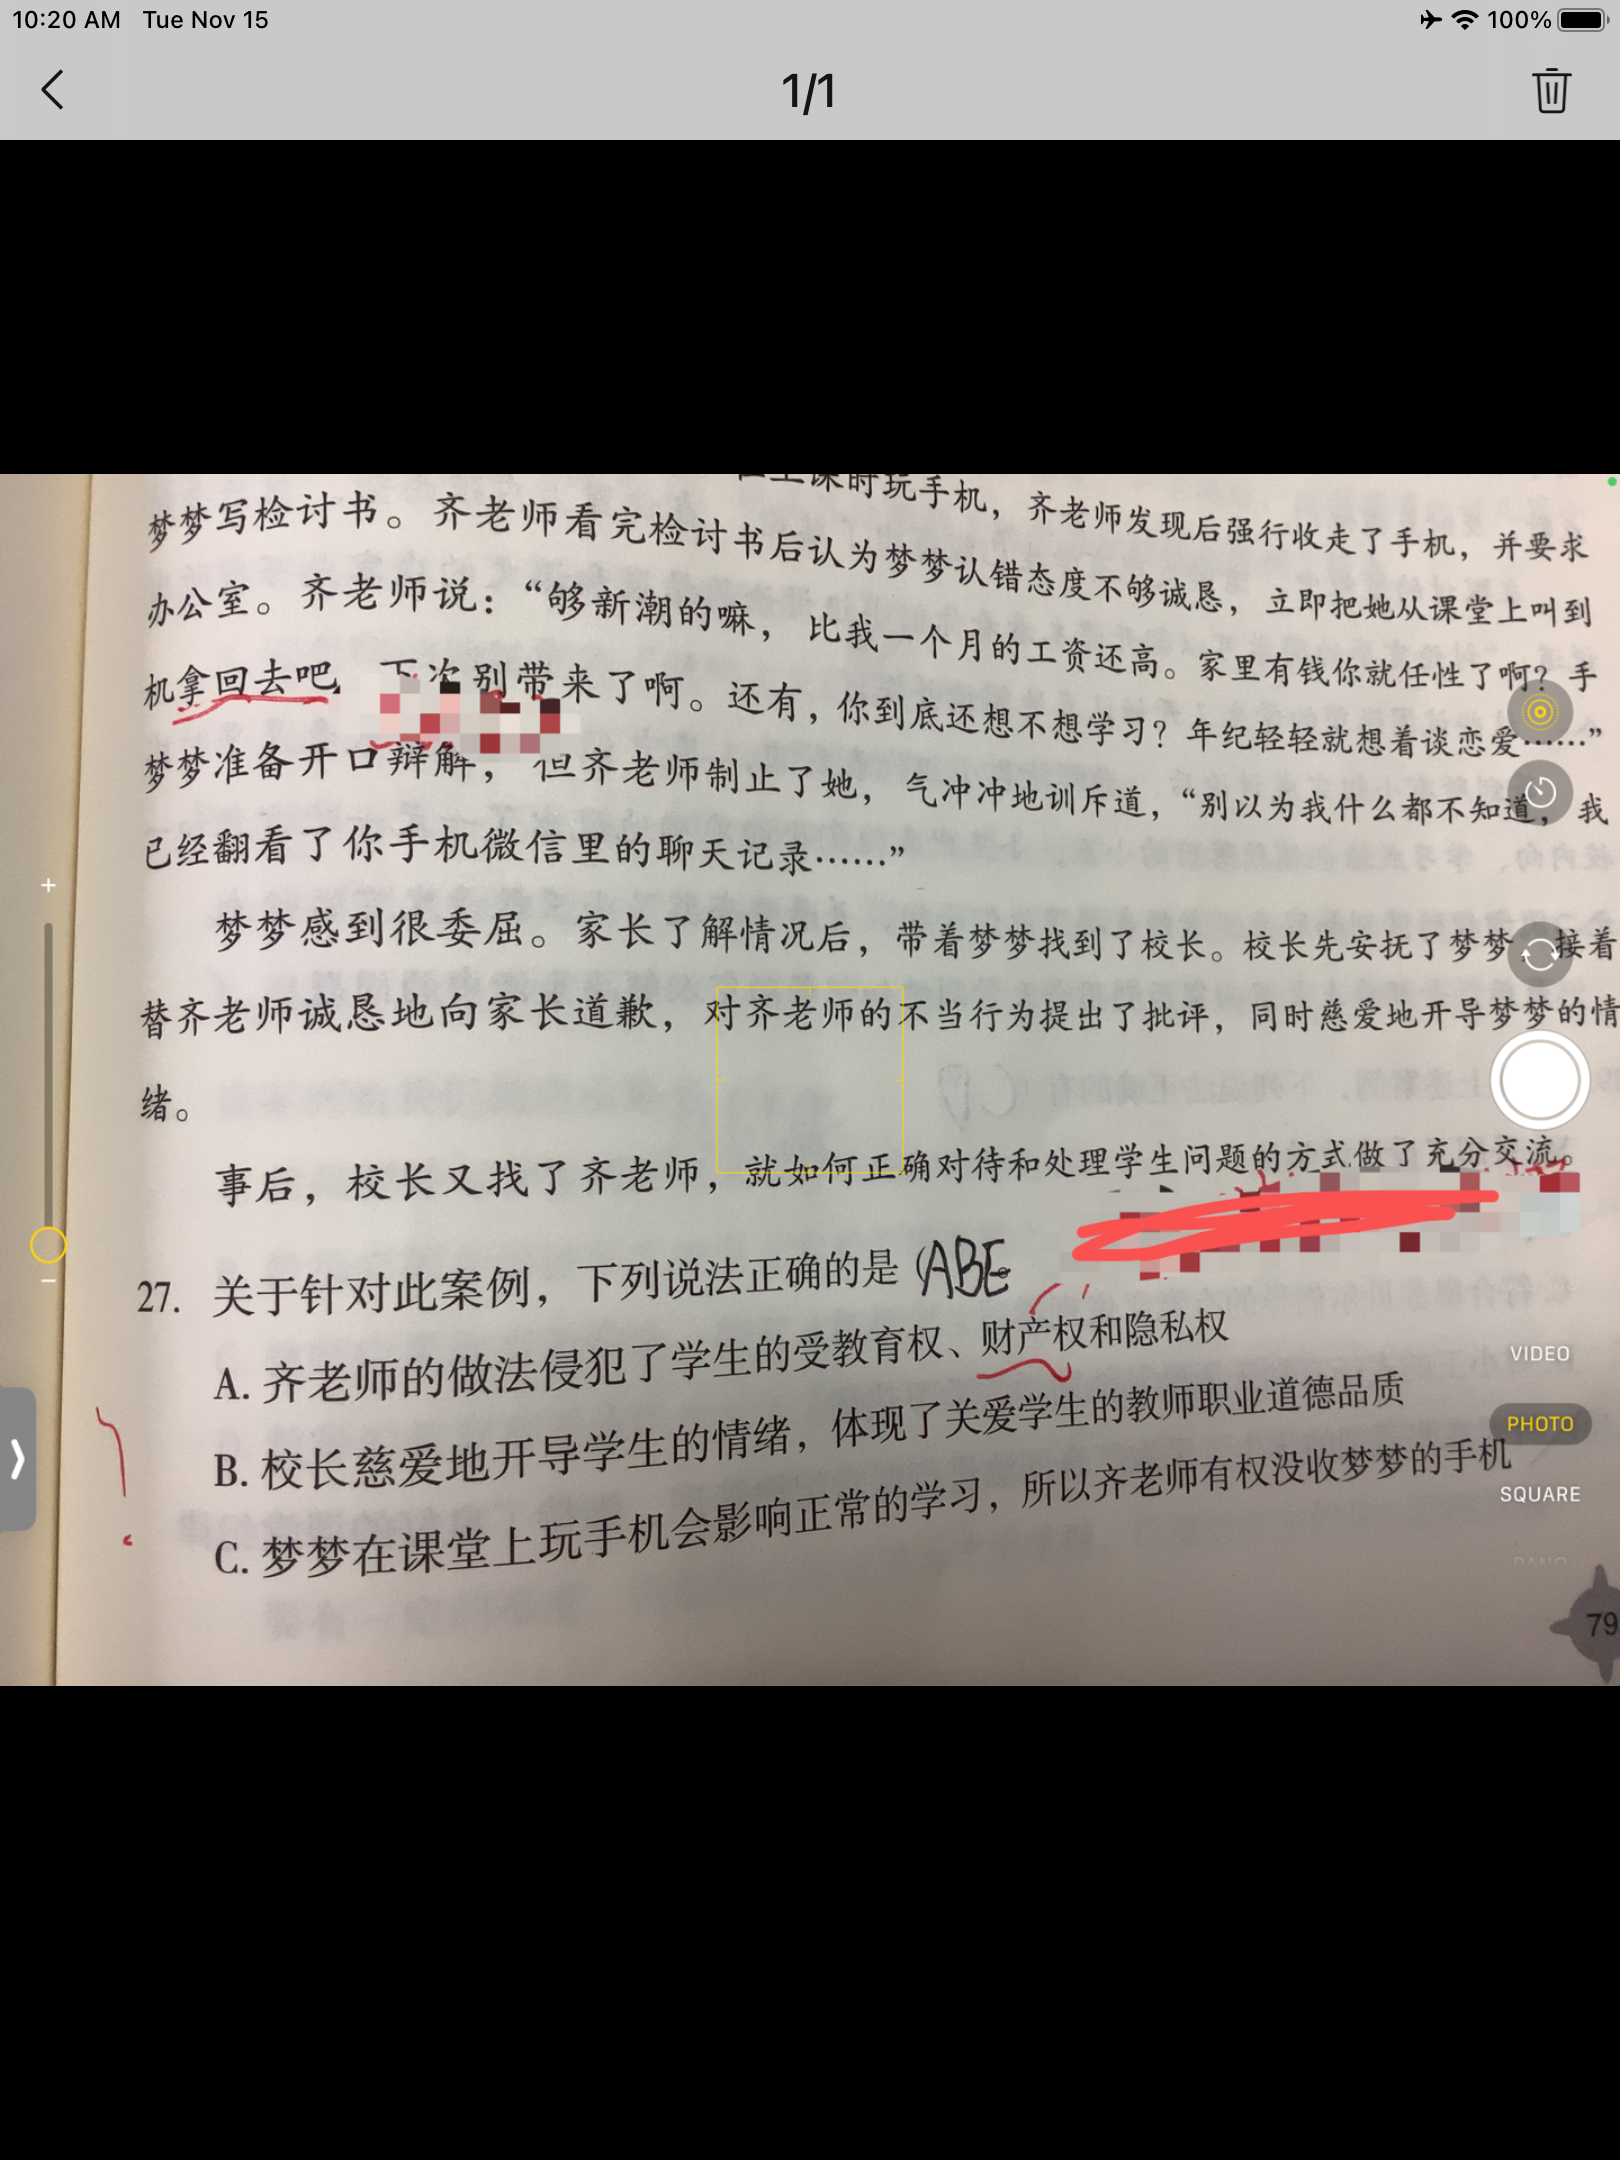 10:20 AM Tue Nov 15 100%
1/1
上课时玩手机，齐老师发现后强行收走了手机，并要求
梦梦写检讨书。齐老师看完检讨书后认为梦梦认错态度不够诚恳，立即把她从课堂上叫到
办公室。齐老师说：“够新潮的嘛，比我一个月的工资还高。家里有钱你就任性了啊？手
机拿回去吧 下次别带来了啊。还有，你到底还想不想学习？年纪轻轻就想着谈恋爱……”
梦梦准备开口辩解，但齐老师制止了她，气冲冲地训斥道，“别以为我什么都不知道，我
已经翻看了你手机微信里的聊天记录……”
梦梦感到很委屈。家长了解情况后，带着梦梦找到了校长。校长先安抚了梦梦，接着
替齐老师诚恳地向家长道歉，对齐老师的不当行为提出了批评，同时慈爱地开导梦梦的情
绪。
事后，校长又找了齐老师，就如何正确对待和处理学生问题的方式做了充分交流。
27. 关于针对此案例，下列说法正确的是（ABE
A. 齐老师的做法侵犯了学生的受教育权、财产权和隐私权
B. 校长慈爱地开导学生的情绪，体现了关爱学生的教师职业道德品质
C. 梦梦在课堂上玩手机会影响正常的学习，所以齐老师有权没收梦梦的手机
79
VIDEO
PHOTO
SQUARE
PANO